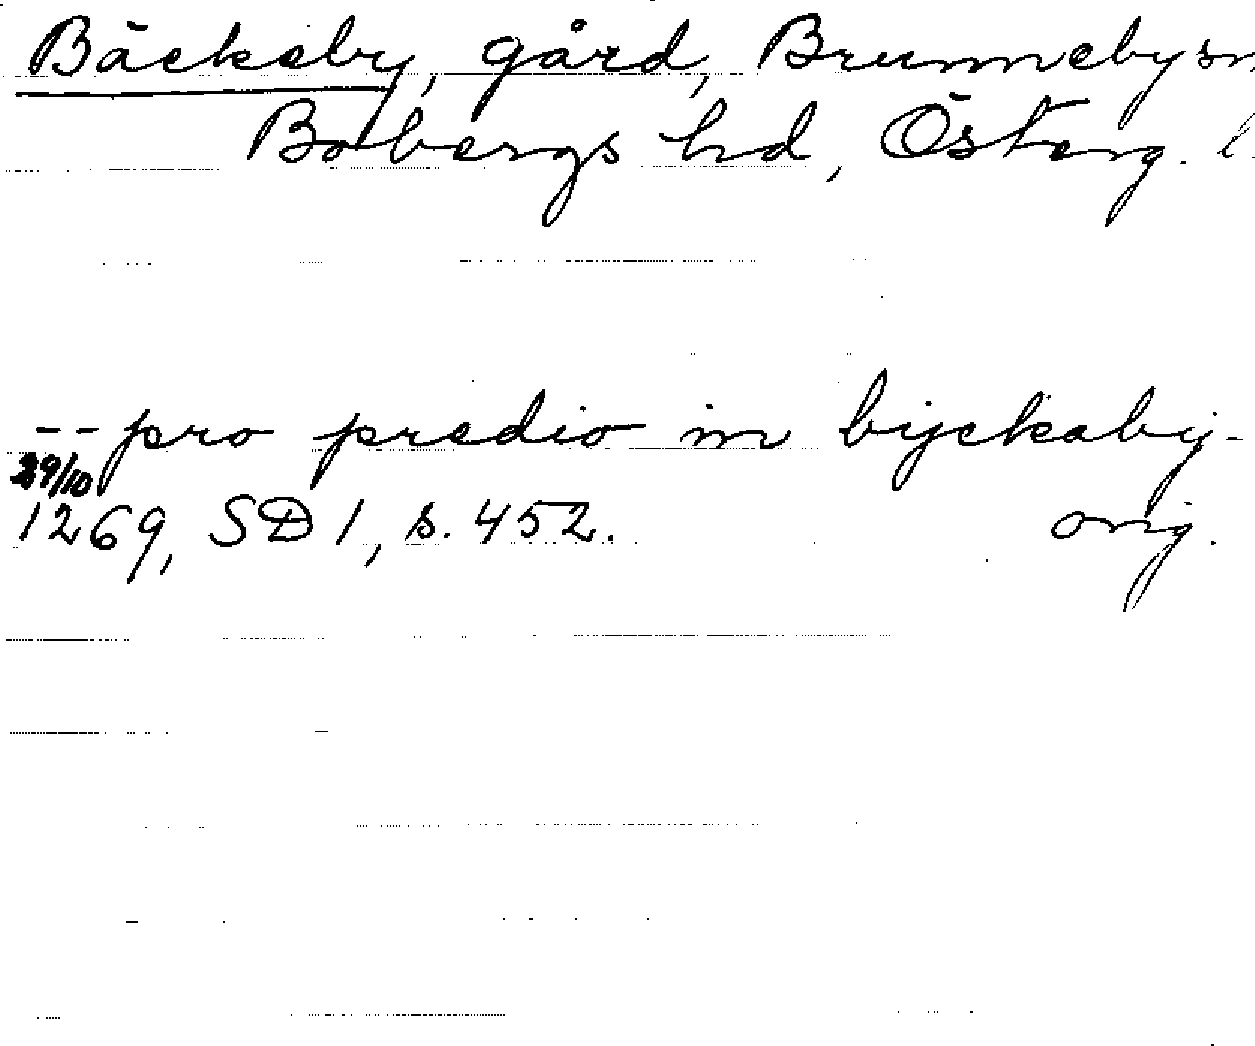 Bäckeby, gård, Brunnebysn
Bobergs hd, Österg. l.
-- pro predio in byckaby -
29/10
1269, SD 1, s. 452. orig.